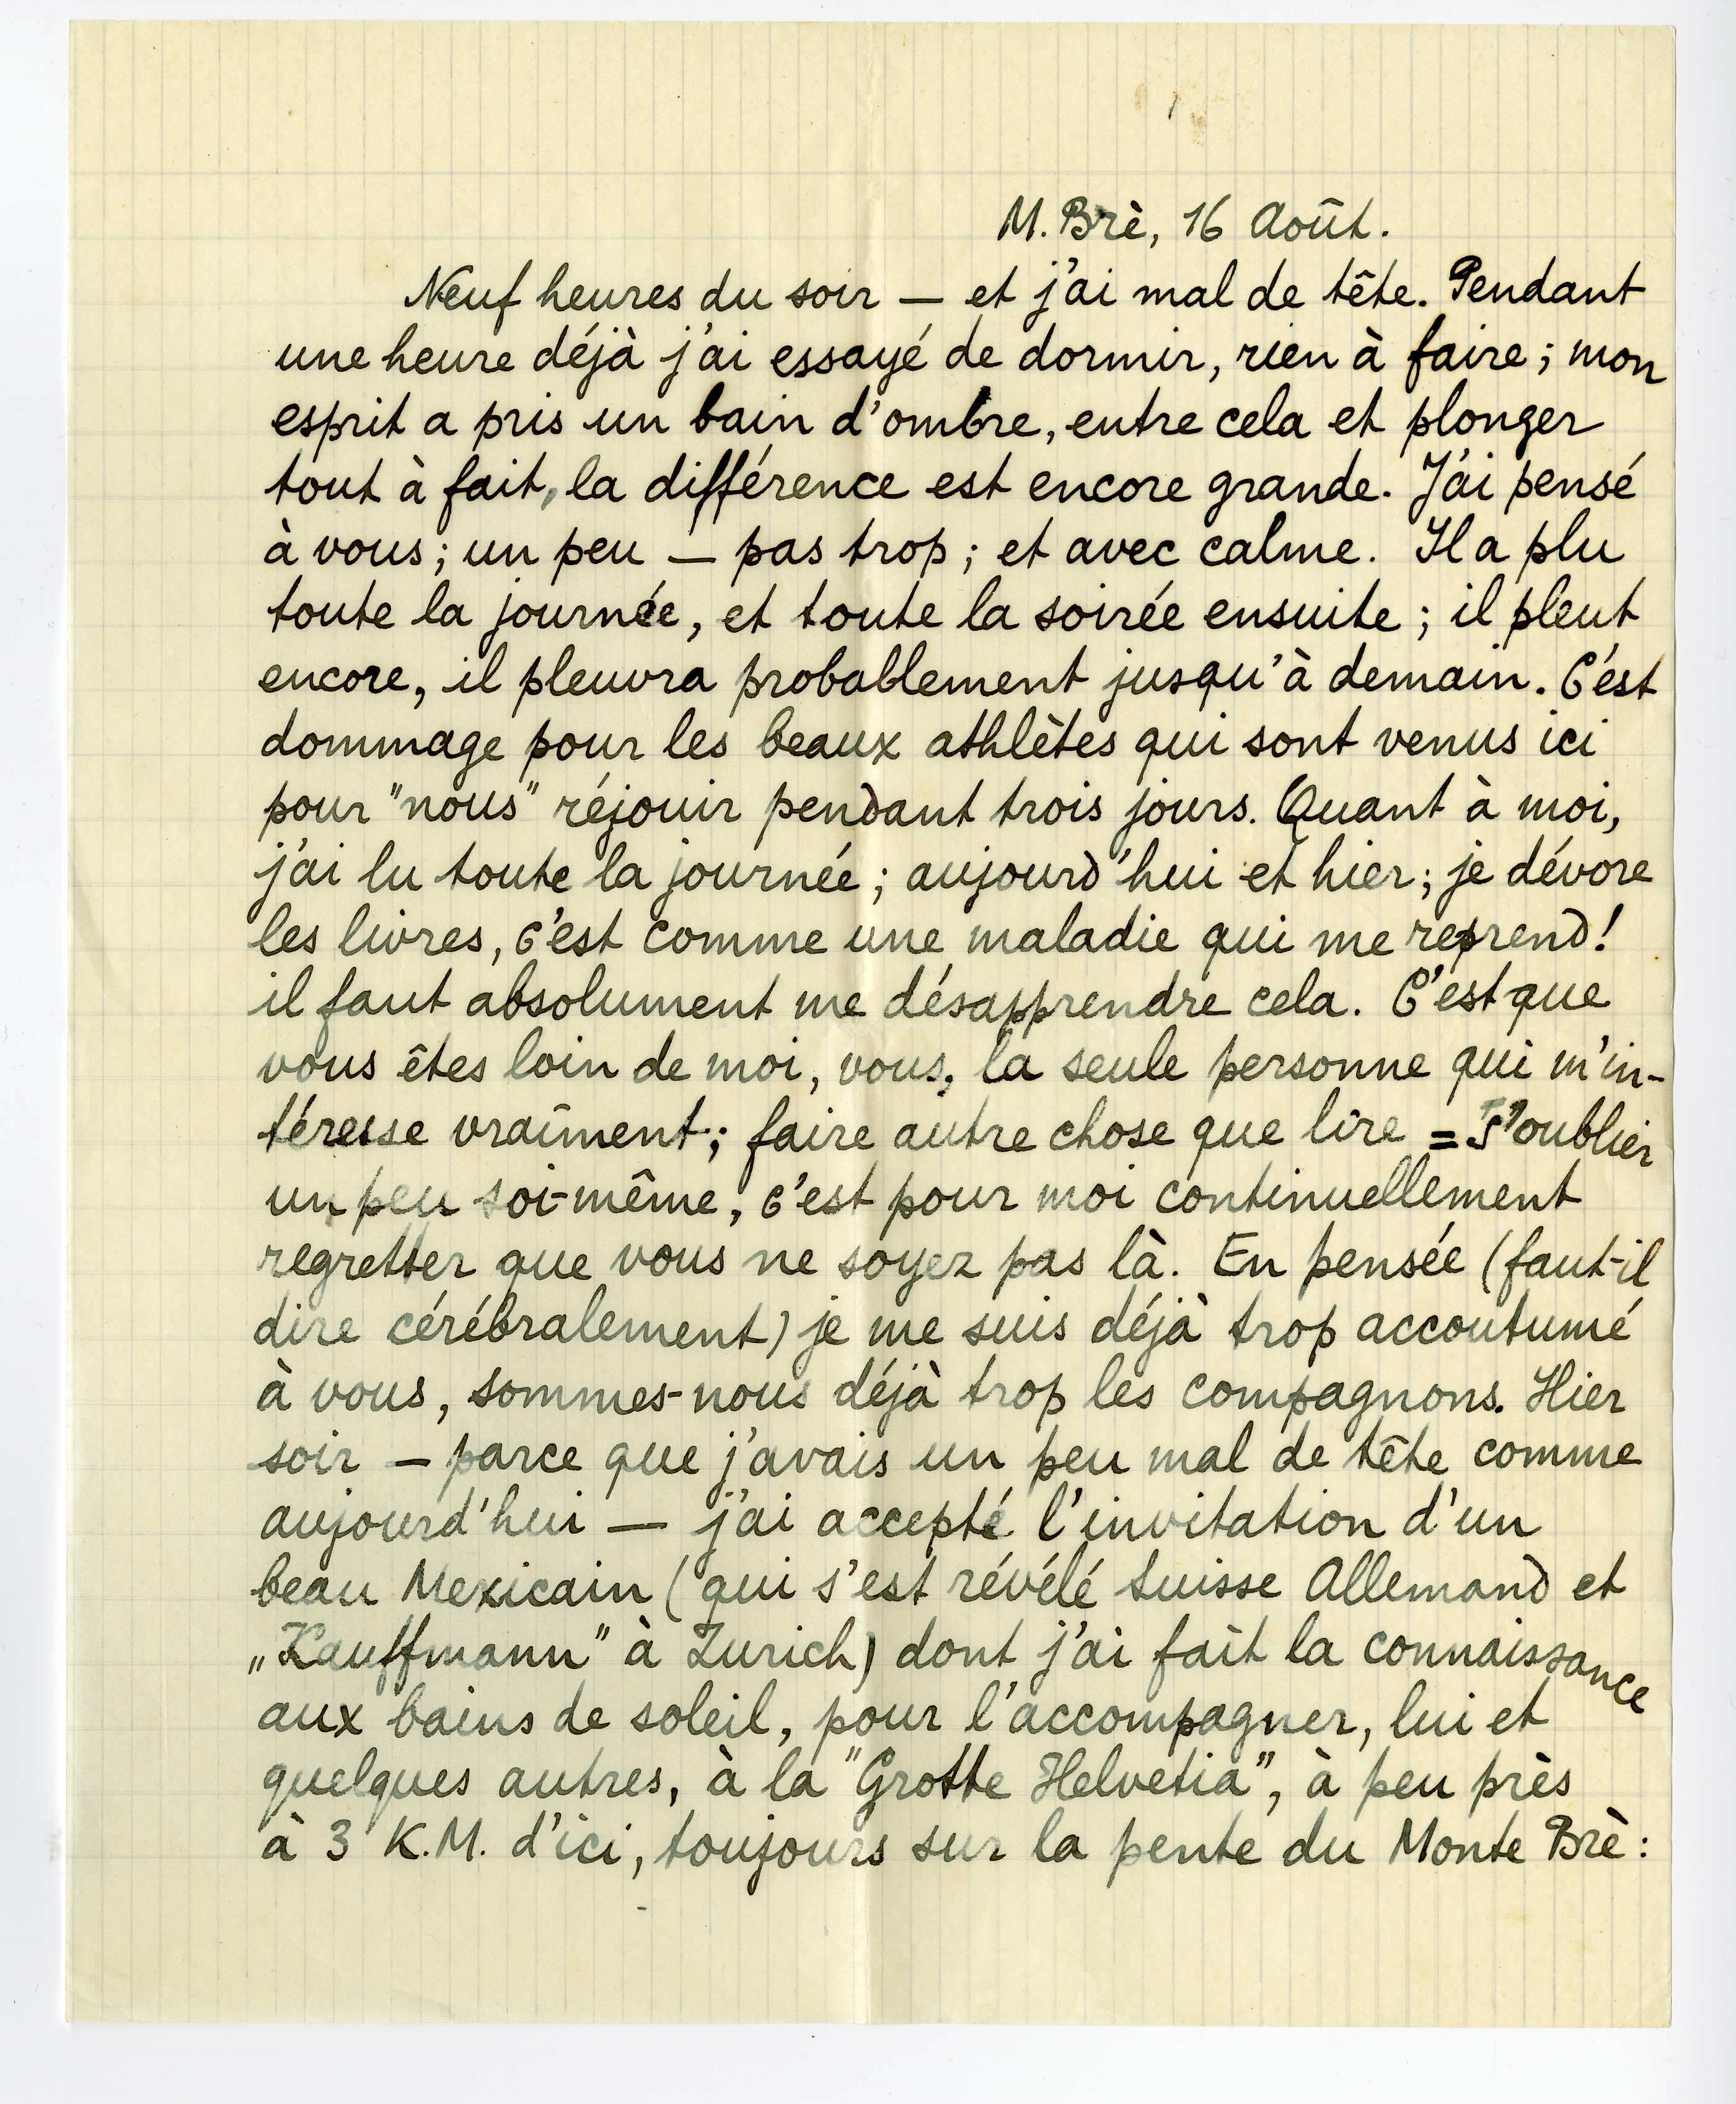 M. Brè, 16 Août.
Neuf heures du soir — et j'ai mal de tête. Pendant
une heure déjà j'ai essayé de dormir, rien à faire; mon
esprit a pris un bain d'ombre, entre cela et plonger
tout à fait, la différence est encore grande. J'ai pensé
à vous; un peu — pas trop; et avec calme. Il a plu
toute la journée, et toute la soirée ensuite; il pleut
encore, il pleuvra probablement jusqu'à demain. C'est
dommage pour les beaux athlètes qui sont venus ici
pour "nous" réjouir pendant trois jours. Quant à moi,
j'ai lu toute la journée; aujourd'hui et hier; je dévore
les livres, c'est comme une maladie qui me reprend!
il faut absolument me désapprendre cela. C'est que
vous êtes loin de moi, vous, la seule personne qui m'in-
téresse vraîment; faire autre chose que lire = s'oublier
un peu soi-même, c'est pour moi continuellement
regretter que vous ne soyez pas là. En pensée (faut-il
dire cérébralement) je me suis déjà trop accoutumé
à vous, sommes-nous déjà trop les compagnons. Hier
soir — parce que j'avais un peu mal de tête comme
aujourd'hui — j'ai accepté l'invitation d'un
beau Mexicain (qui s'est révélé Suisse Allemand et
„Kauffmann" à Zurich) dont j'ai fait la connaissance
aux bains de soleil, pour l'accompagner, lui et
quelques autres, à la "Grotte Helvetia", à peu près
à 3 K.M. d'ici, toujours sur la pente du Monte Brè: